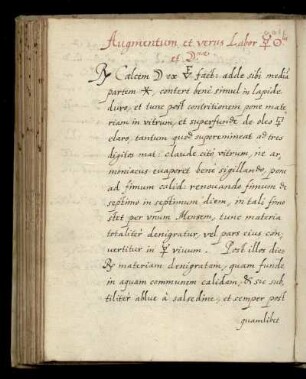 Augmentum et verus Labor ☿ ☉
et ☽
℞ Calcem ☽ ex 🜊 fact: adde sibi mediā
partem ✶, contere bene simul in lapide
duro, et tunc post contritionem pone mate
riam in vitrum, et superfunde de oleo
claro, tantum quod superemineat ad tres
digitos mat: claude cito vitrum, ne ar,
miniacus euaporet bene sigillando, pone
ad fimum calid: renouando fimum de
septimo in septimum diem, in tali fimo
stet per vnum Mensem, tunc materia
totaliter denigratur, vel pars eius con,
uertitur in ☿ viuum. Post illos dies
℞ materiam denigratam, quam funde
in aquam communem calidam, et sic sub
tiliter ablue à salsedine, et semper post
quamlibet